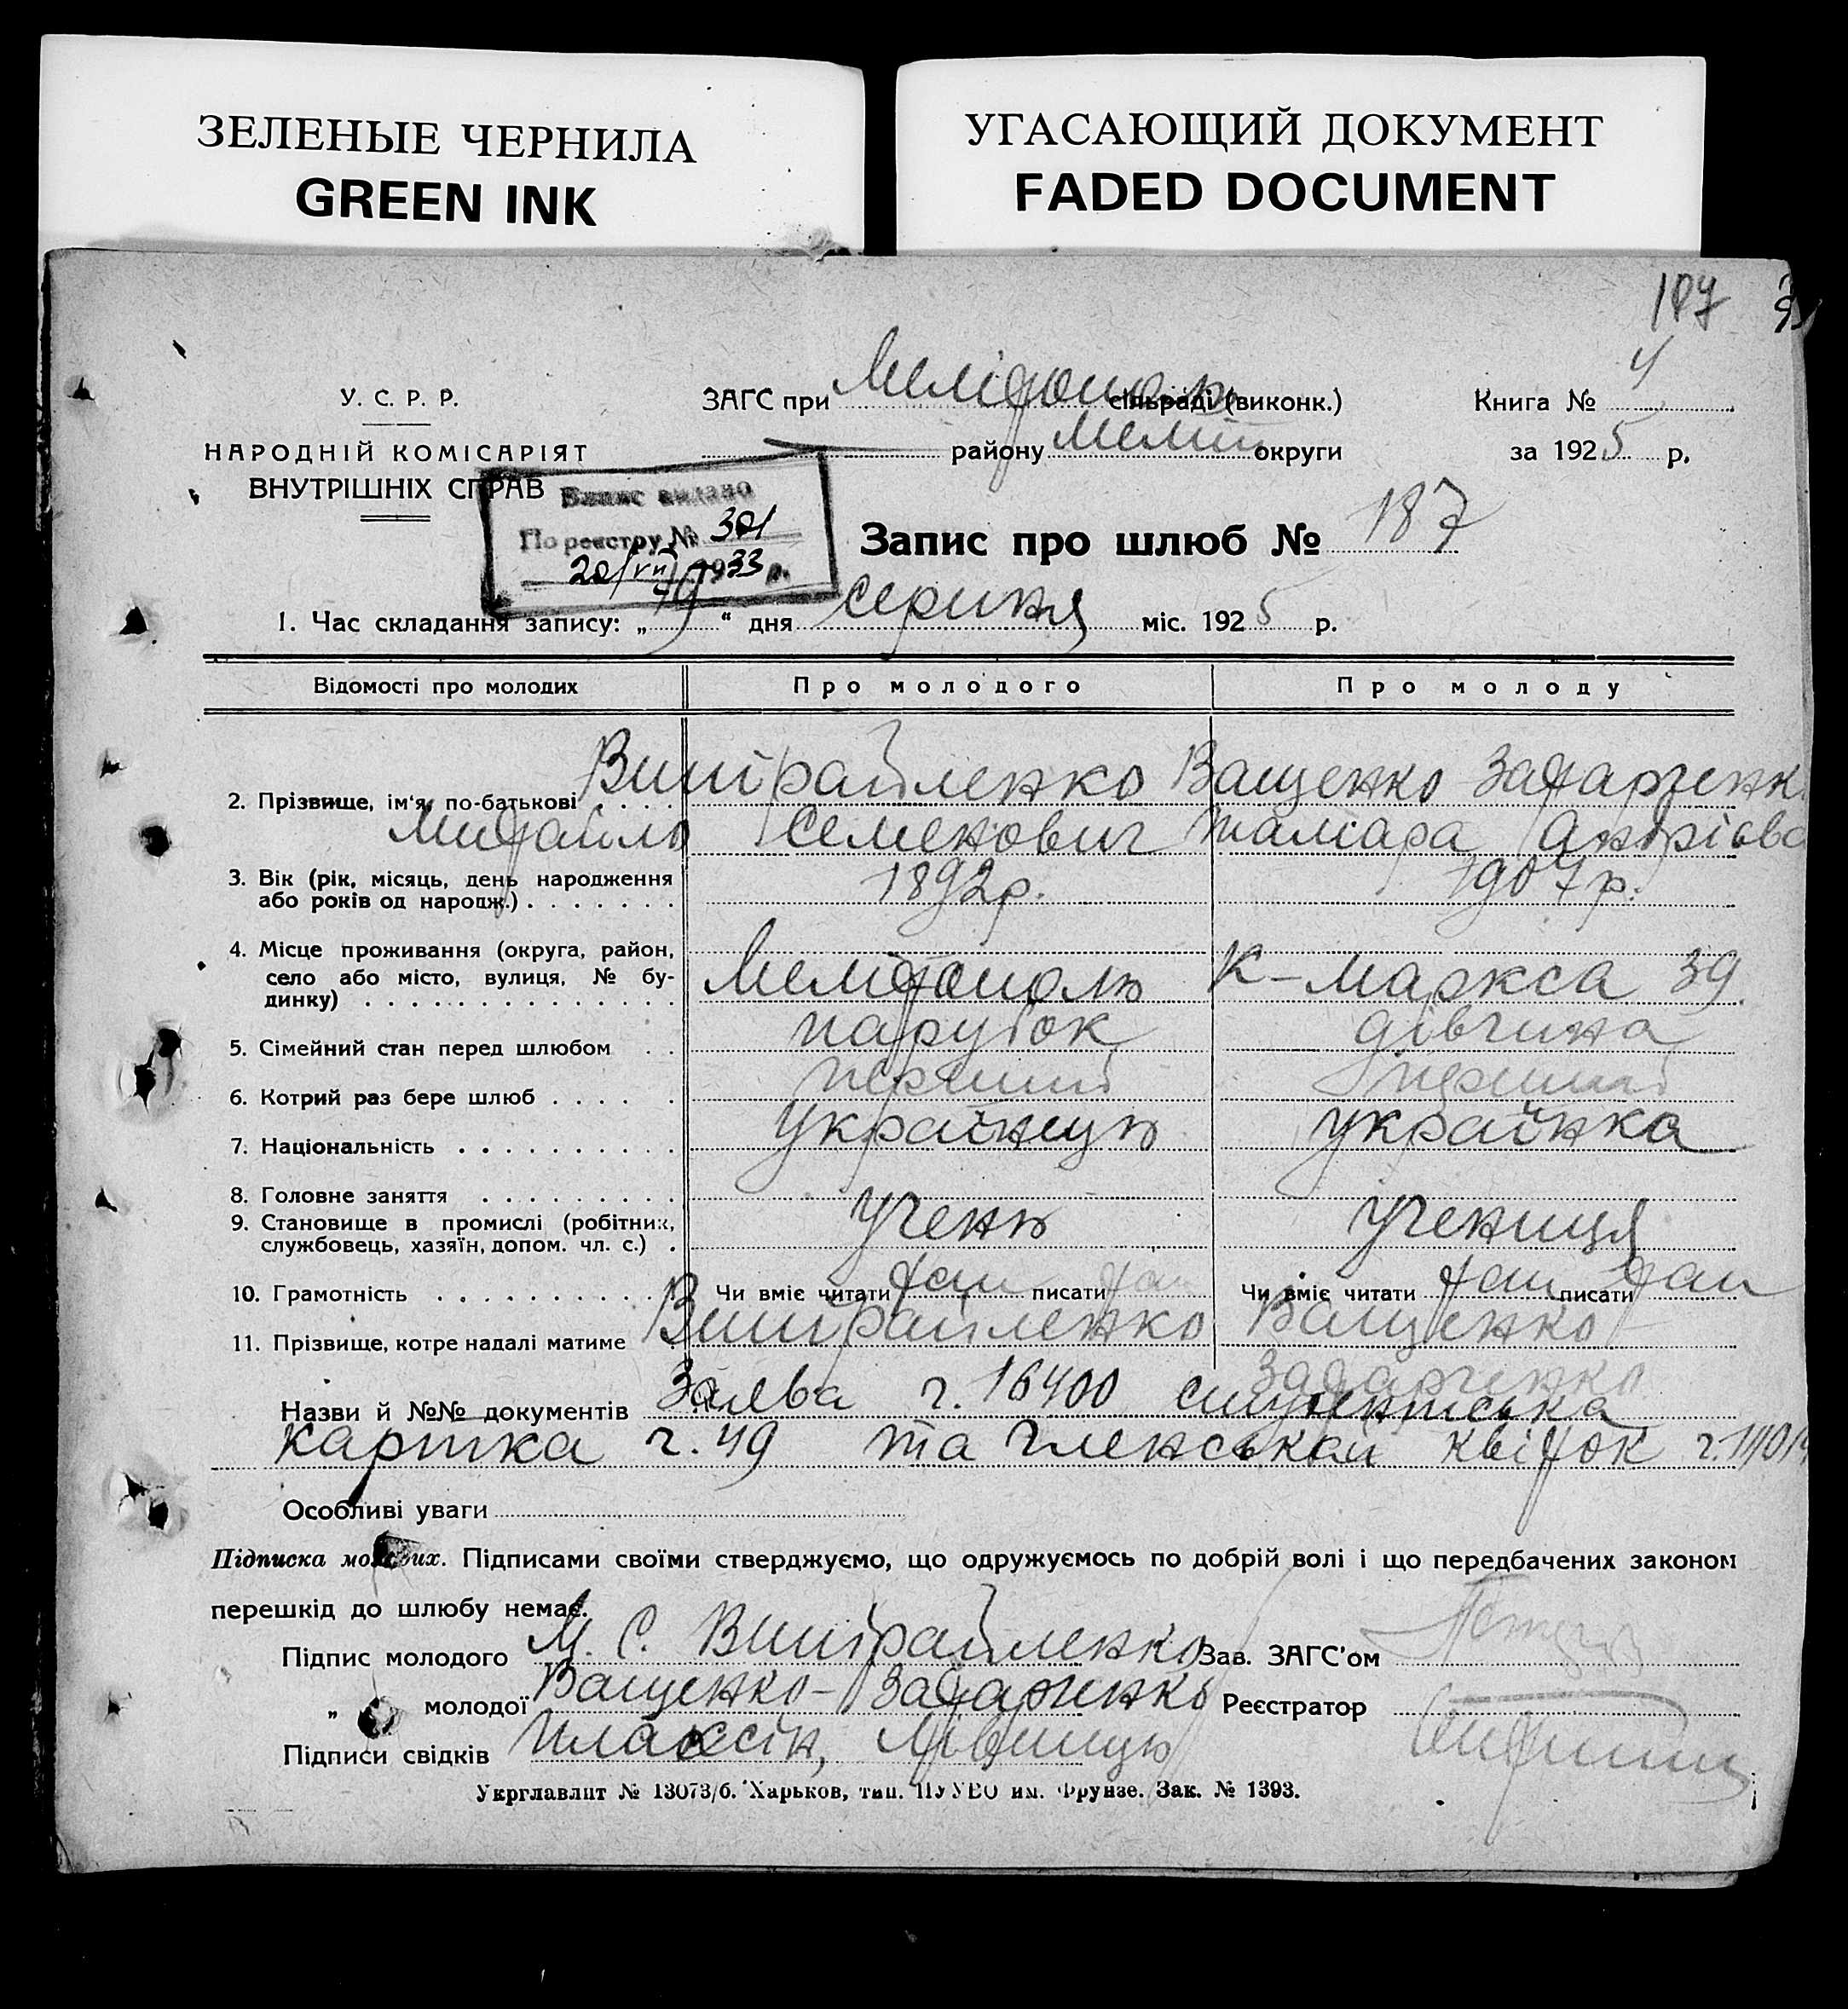 ЗЕЛЕНЫЕ ЧЕРНИЛА
GREEN INK
УГАСАЮЩИЙ ДОКУМЕНТ
FADED DOCUMENT
187
У. С. Р. Р.
НАРОДНІЙ КОМІСАРІЯТ
ВНУТРІШНІХ СПРАВ
ЗАГС при сільраді (виконк.)
району Меліт округи
Книга № 4
за 1925 р.
Випис видано
По реєстру № 301
20/VII 1933 р.
Запис про шлюб № 187
1. Час складання запису: „19“ дня серпня міс. 1925 р.
Відомості про молодих
Про молодого
Про молоду
2. Прізвище, ім'я, по-батькові
Вишрайленко
Михайло Семенович
Ващенко Захарченк
Тамара Андрієва
3. Вік (рік, місяць, день народження
або років од народж.)
1892р.
1907р.
4. Місце проживання (округа, район,
село або місто, вулиця, № бу-
динку)
Мелітополь
К-Маркса 39.
5. Сімейний стан перед шлюбом
парубок
дівчина
6. Котрий раз бере шлюб
перший
перший
7. Національність
українець
українка
8. Головне заняття
9. Становище в промислі (робітник,
службовець, хазяїн, допом. чл. с.)
учень
учениця
10. Грамотність
Чи вміє читати так писати так
Чи вміє читати так писати так
11. Прізвище, котре надалі матиме
Вишрайленко
Ващенко-
Захарченко
Назви й №№ документів Заява г. 16400 студентська
картка г. 49 та членський квіток
Особливі уваги
Підписка молодих. Підписами своїми стверджуємо, що одружуємось по добрій волі і що передбачених законом
перешкід до шлюбу немає.
Підпис молодого М. С. Вишрайленко
Зав. ЗАГС'ом
„ молодої Ващенко-Захарченко
Реєстратор
Підписи свідків Плаксін,
Укрглавлит № 13073/б. Харьков, тип. ПУУВО им. Фрунзе. Зак. № 1393.